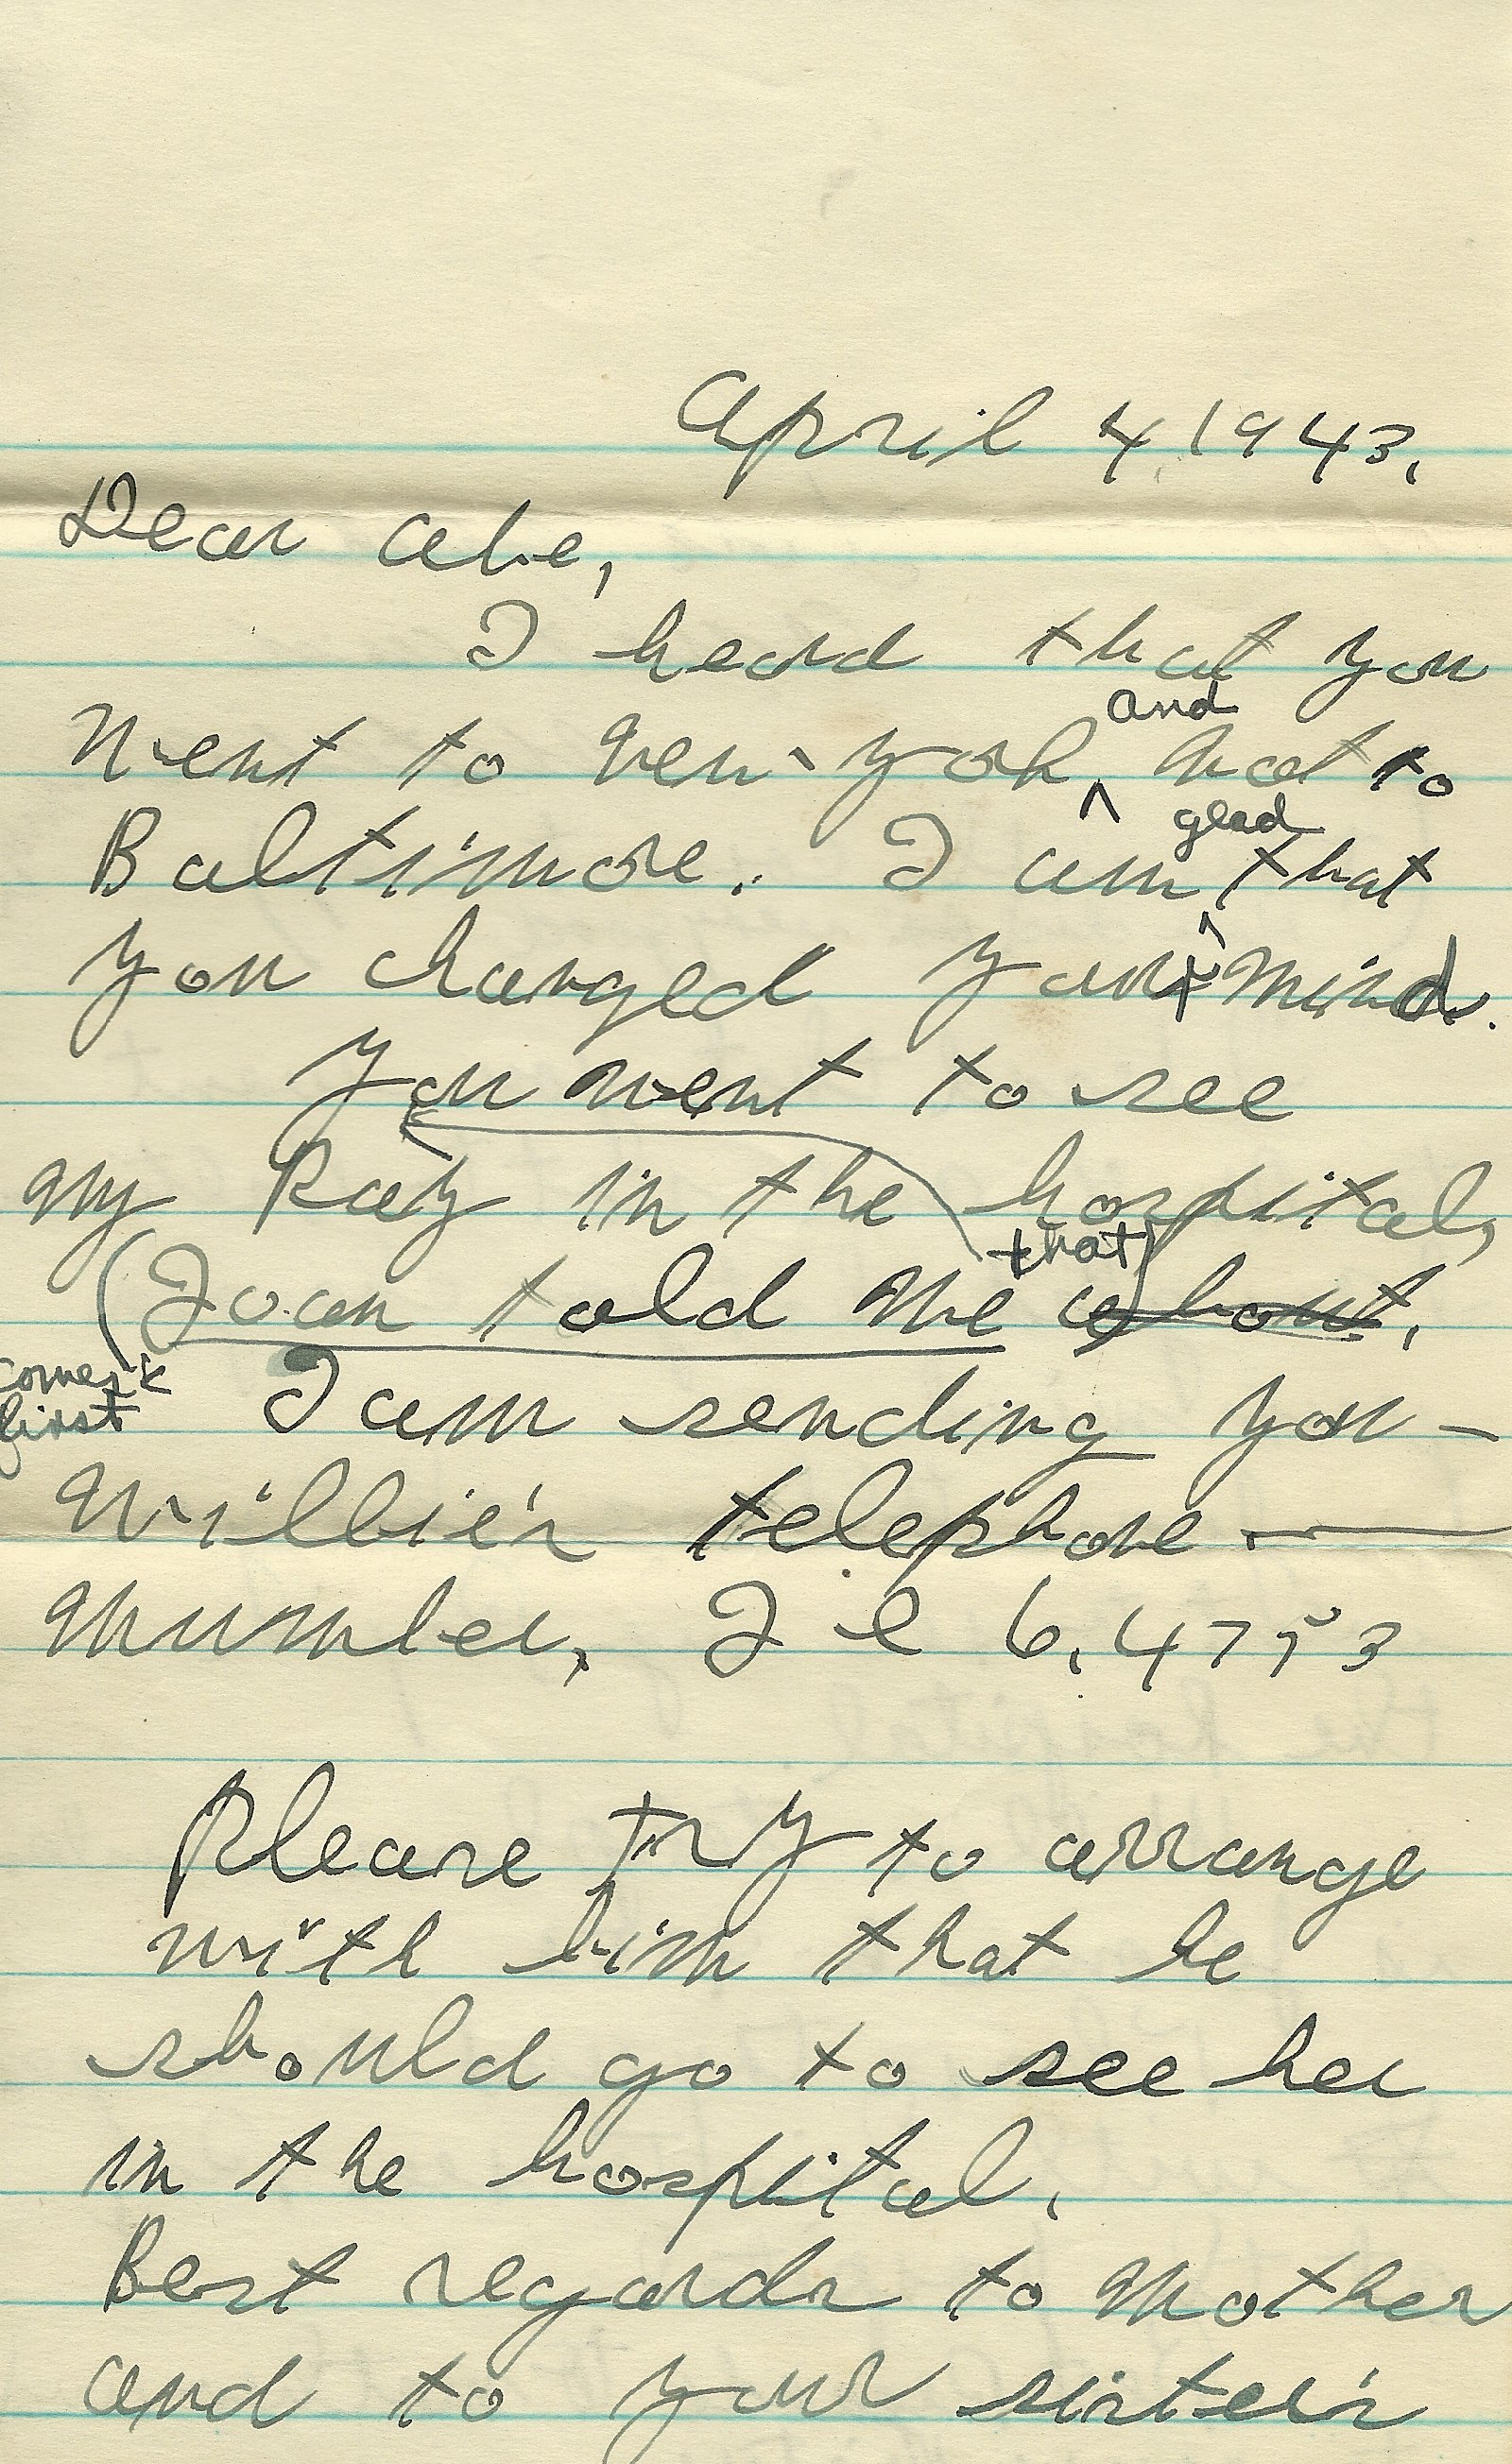 April 4, 1943.
Dear Abe,
I heard that you
and
went to New-York, not to
glad
Baltimore. I am that
you changed your mind.
You went to see
my Ray in the hospital,
that
(Joan told me about.
comes
first
I am sending you -
Willie's telephone -
number, J e 6.4753
Please try to arrange
with him that he
should go to see her
in the hospital.
Best regards to Mother
and to your sister's